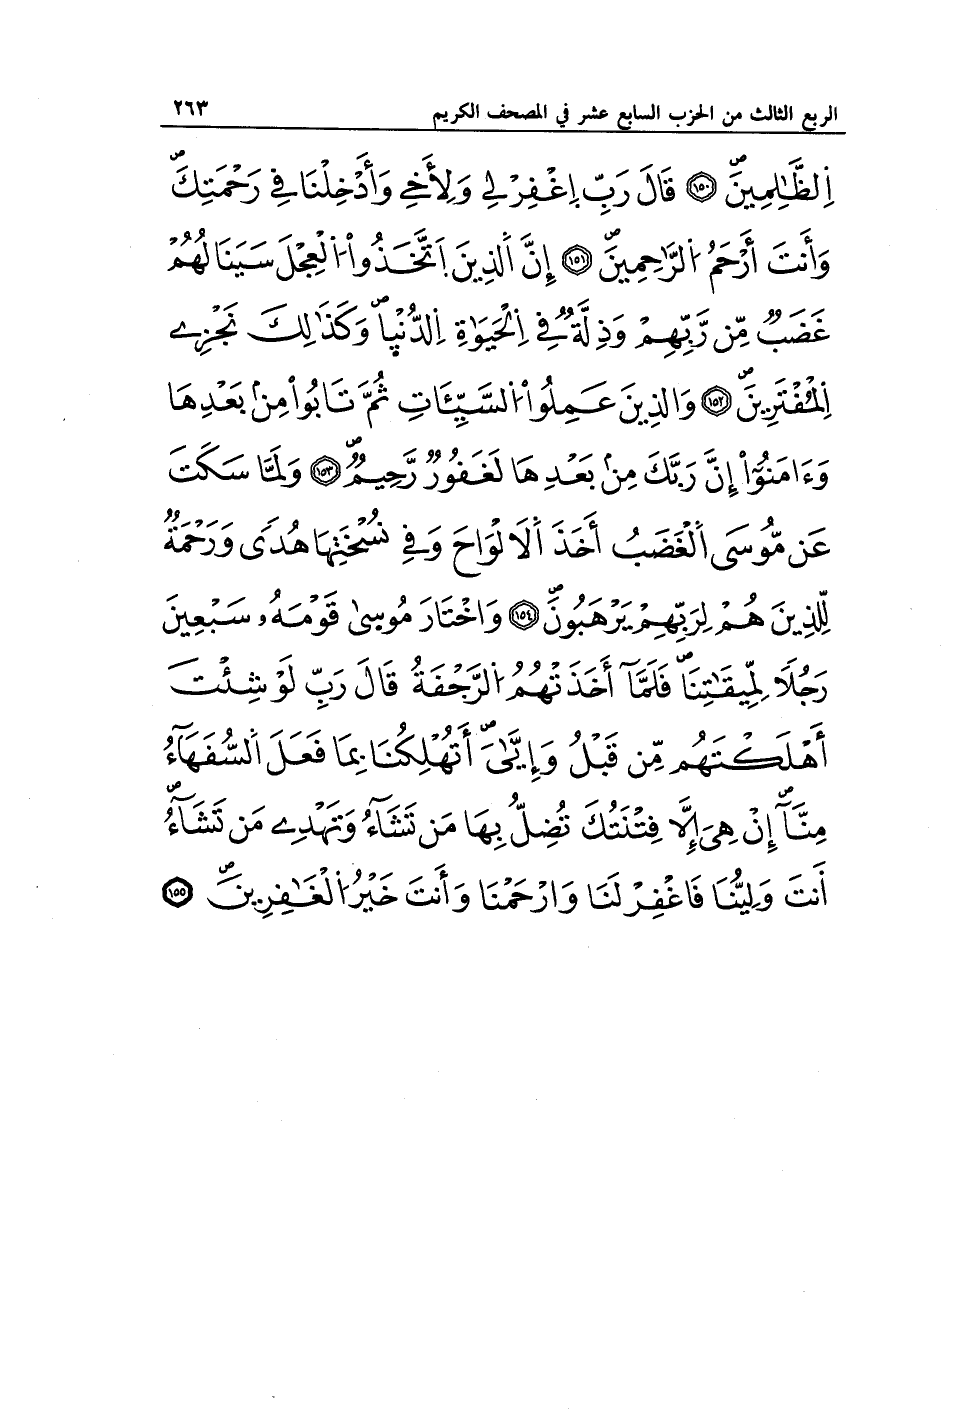 الربع الثالث من الحزب السابع عشر في المصحف الكريم ٢٦٣
اِ۬لظَّٰلِمِينَۖ ١٥٠ قَالَ رَبِّ اِ۪غْفِرْ لِے وَلِأَخِے وَأَدْخِلْنَا فِے رَحْمَتِكَۖ
وَأَنتَ أَرْحَمُ اُ۬لرَّٰحِمِينَۖ ١٥١ إِنَّ اَ۬لذِينَ اَ۪تَّخَذُواْ اُ۬لْعِجْلَ سَيَنَالُهُمْ
غَضَبٞ مِّن رَّبِّهِمْ وَذِلَّةٞ فِے اِ۬لْحَيَوٰةِ اِ۬لدُّنْي۪اۖ وَكَذَٰلِكَ نَجْزِے
اِ۬لْمُفْتَرِينَۖ ١٥٢ وَالذِينَ عَمِلُواْ اُ۬لسَّيِّـَٔاتِ ثُمَّ تَابُواْ مِنۢ بَعْدِهَا
وَءَامَنُوٓاْ إِنَّ رَبَّكَ مِنۢ بَعْدِهَا لَغَفُورٞ رَّحِيمٞۖ ١٥٣ وَلَمَّا سَكَتَ
عَن مُّوسَى اَ۬لْغَضَبُ أَخَذَ اَ۬لَالْوَاحَ وَفِے نُسْخَتِهَا هُدىٗ وَرَحْمَةٞ
لِّلذِينَ هُمْ لِرَبِّهِمْ يَرْهَبُونَۖ ١٥٤ وَاخْتَارَ مُوس۪ىٰ قَوْمَهُۥ سَبْعِينَ
رَجُلاٗ لِّمِيقَٰتِنَاۖ فَلَمَّآ أَخَذَتْهُمُ اُ۬لرَّجْفَةُ قَالَ رَبِّ لَوْ شِئْتَ
أَهْلَكْتَهُم مِّن قَبْلُ وَإِيَّٰىَۖ أَتُهْلِكُنَا بِمَا فَعَلَ اَ۬لسُّفَهَآءُ
مِنَّآۖ إِنْ هِىَ إِلَّا فِتْنَتُكَ تُضِلُّ بِهَا مَن تَشَآءُ وَتَهْدِے مَن تَشَآءُۖ
أَنتَ وَلِيُّنَا فَاغْفِرْ لَنَا وَارْحَمْنَا وَأَنتَ خَيْرُ اُ۬لْغَٰفِرِينَۖ ١٥٥